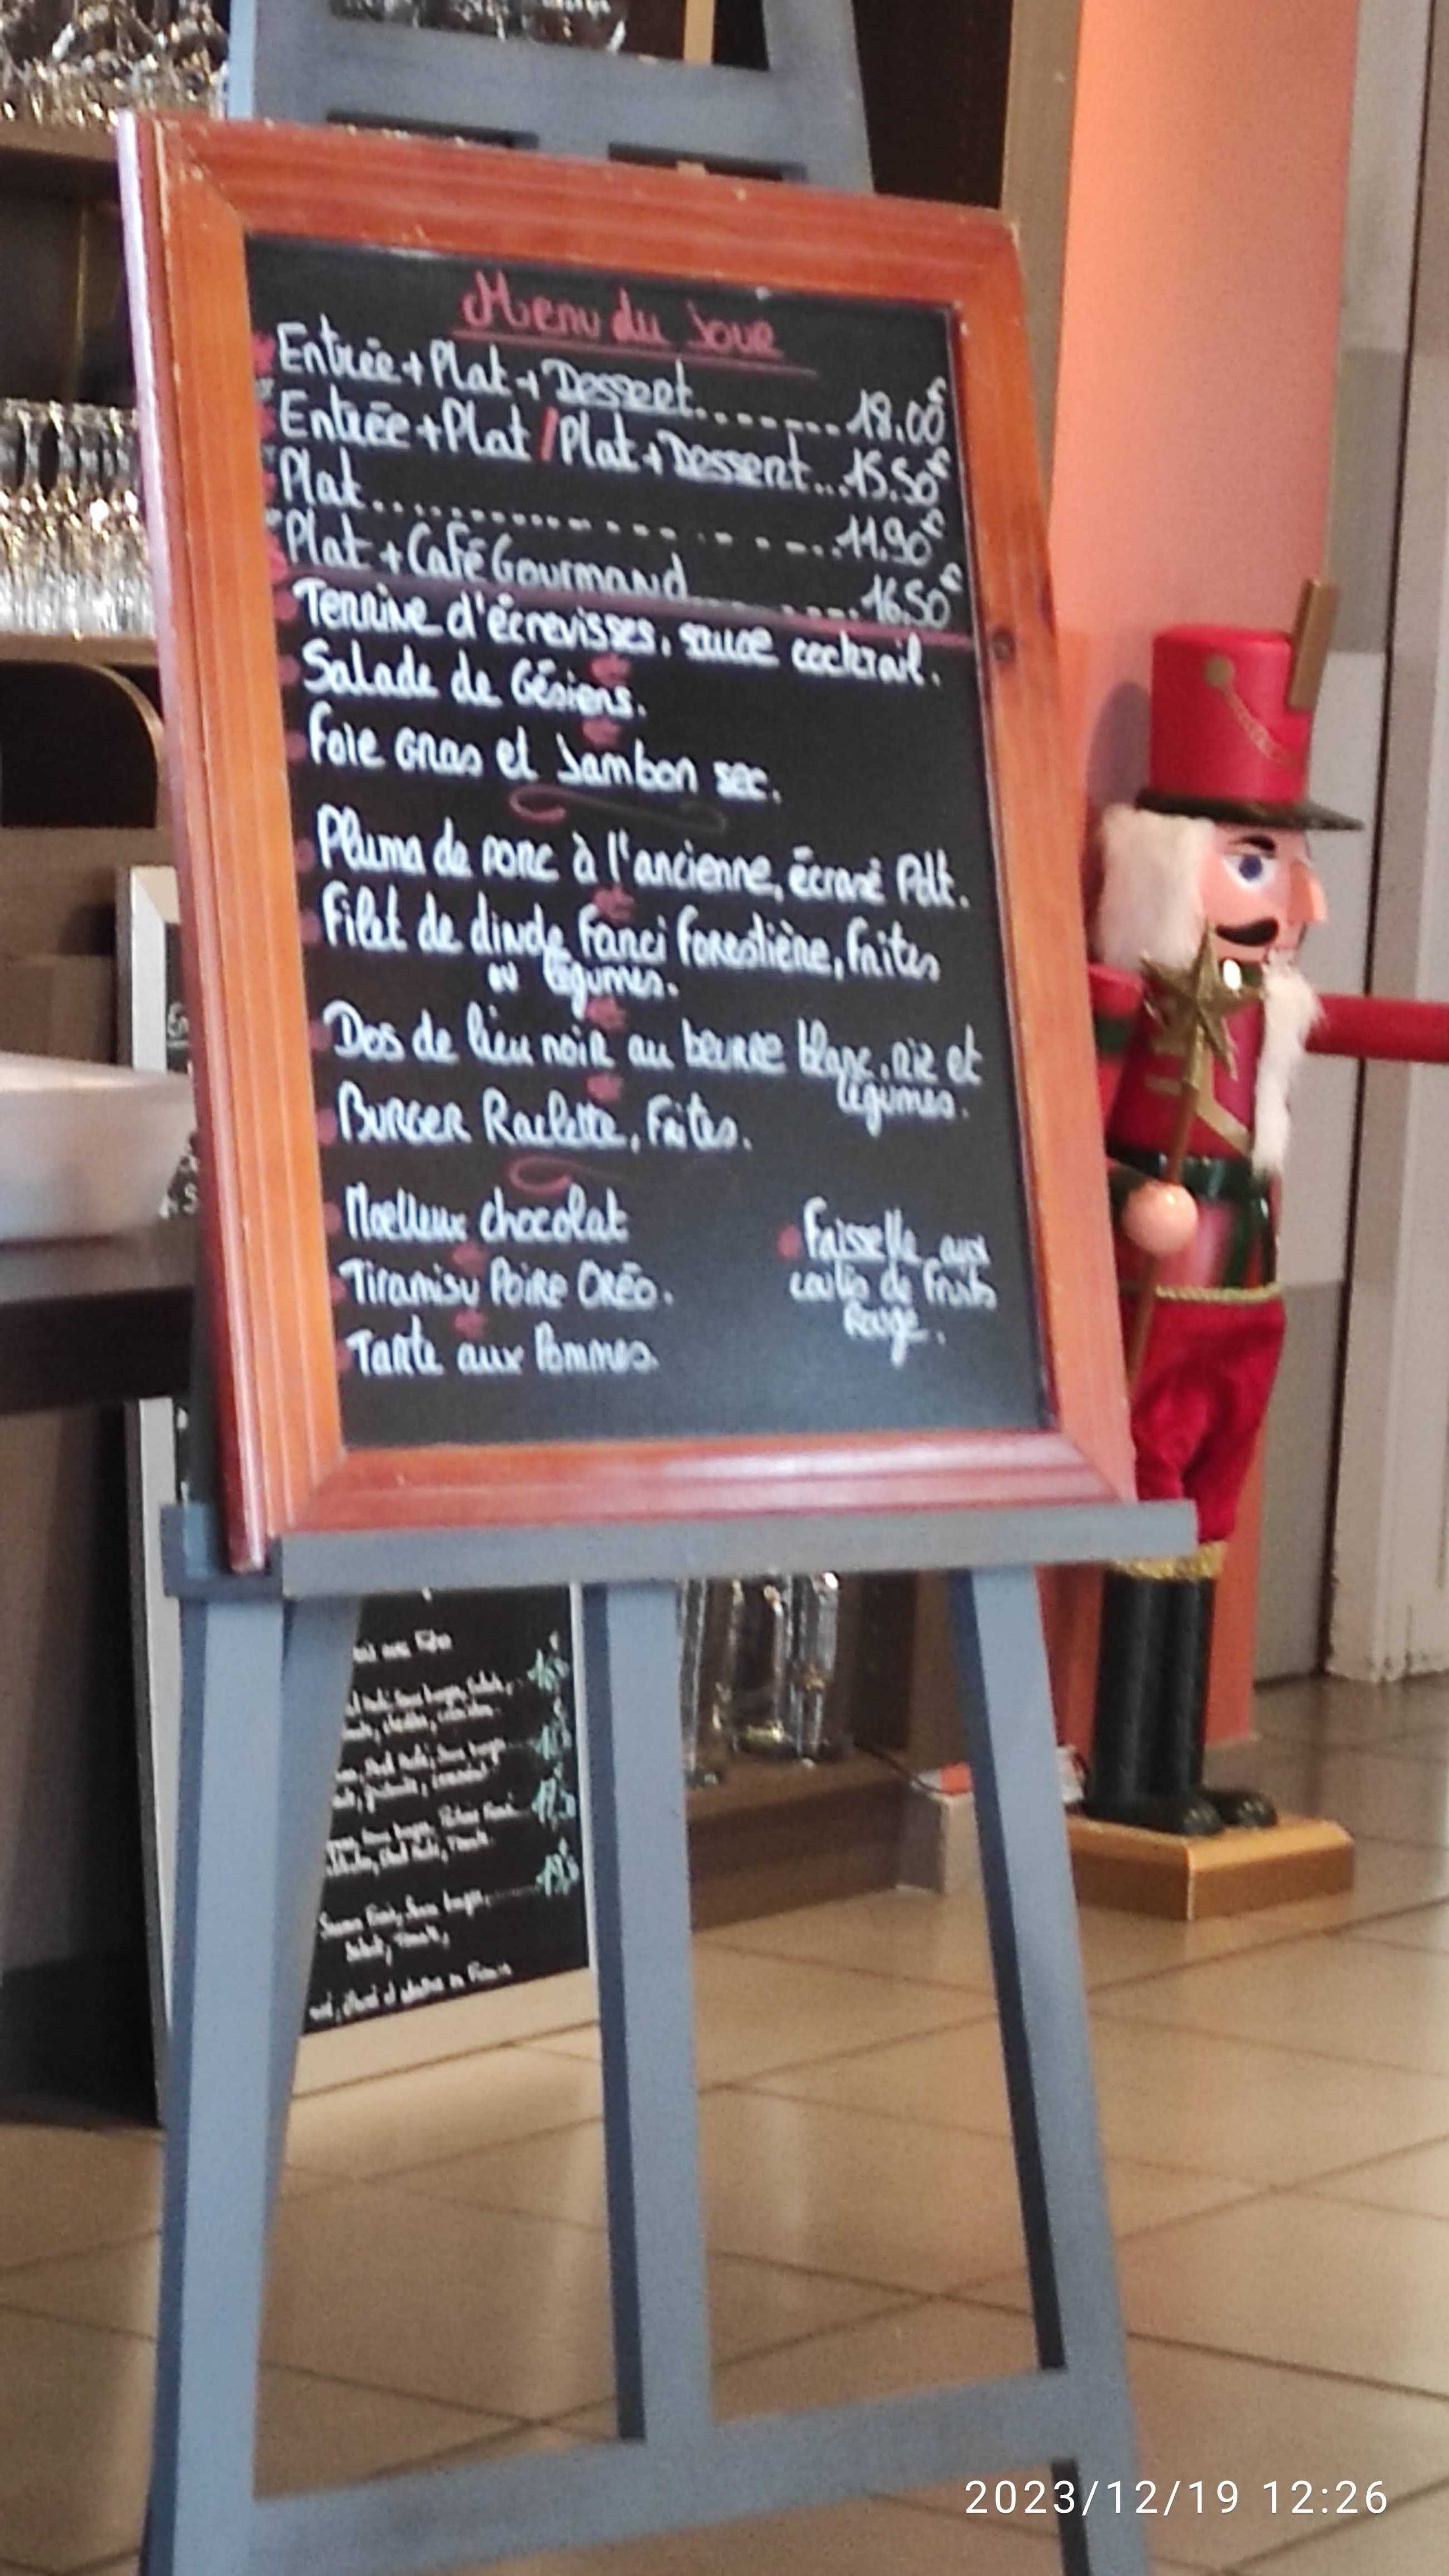 Menu du Jour
Entrée + Plat + Dessert.........18.00€
Entrée + Plat / Plat + Dessert...15.50€
Plat.....................11.90€
Plat + Café Gourmand.........16.50€
Terrine d'écrevisses, sauce cocktail.
Salade de Gésiers.
Foie Gras et Jambon sec.
Pluma de porc à l'ancienne, écrasé Pdt.
Filet de dinde Farci Forestière, Frites
ou légumes.
Dos de lieu noir au beurre blanc, riz et
légumes.
Burger Raclette, Frites.
Moelleux chocolat
Tiramisu Poire Oréo.
Tarte aux Pommes.
Faisselle aux
coulis de Fruits
Rouge.
2023/12/19 12:26